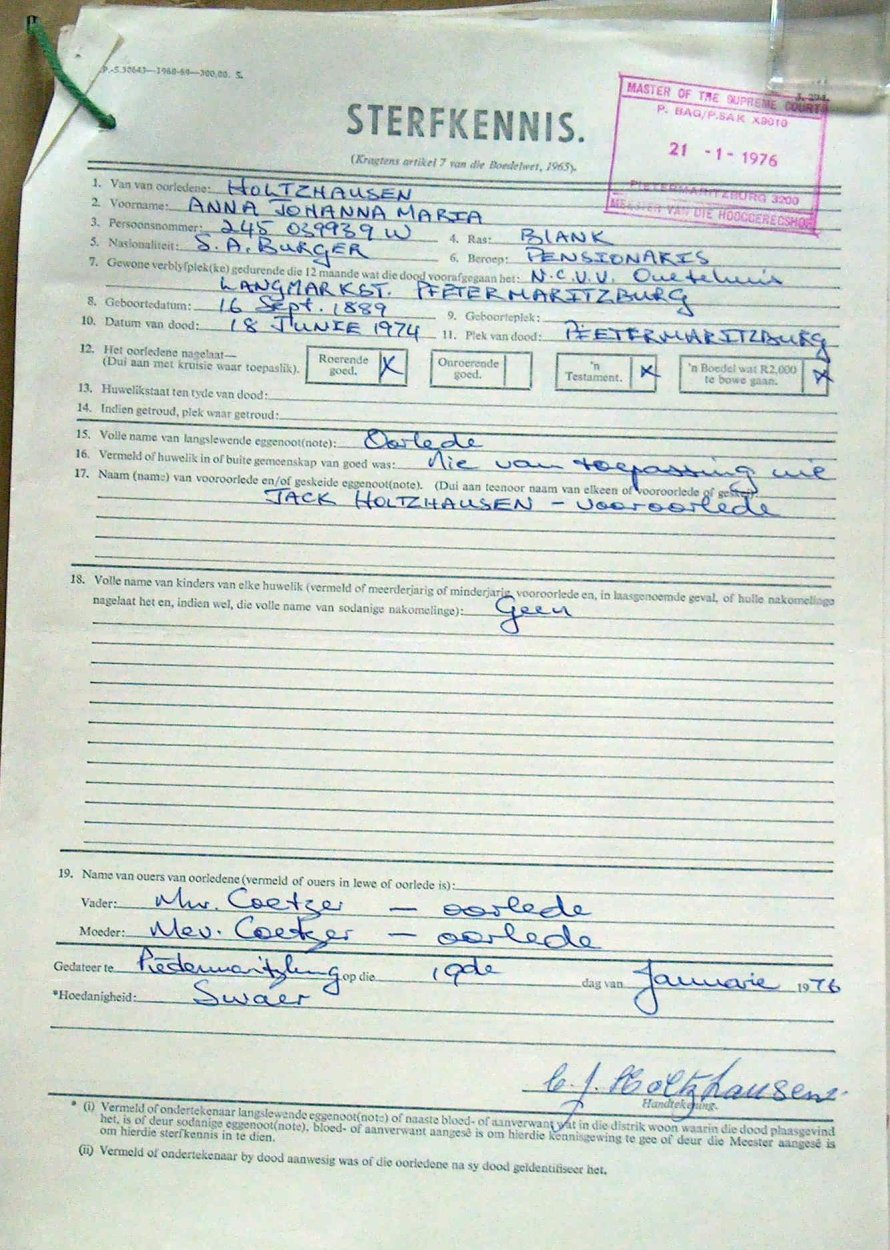 P.-S.30643—1968-69—300,00. S.
J. 294.
STERFKENNIS.
(Kragtens artikel 7 van die Boedelwet, 1965).
MASTER OF THE SUPREME COURT
P. BAG/P.SAK X9010
21 -1- 1976
PIETERMARITZBURG 3200
MEESTER VAN DIE HOOGGEREGSHOF
1. Van van oorledene: HOLTZHAUSEN
2. Voorname: ANNA JOHANNA MARIA
3. Persoonsnommer: 245 039939 W 4. Ras: BLANK
5. Nasionaliteit: S.A. BURGER 6. Beroep: PENSIONARIS
7. Gewone verblyfplek(ke) gedurende die 12 maande wat die dood voorafgegaan het: N.C.V.V. Ouetehuis
LANGMARKST. PIETERMARITZBURG
8. Geboortedatum: 16 Sept. 1889 9. Geboorteplek:
10. Datum van dood: 18 JUNIE 1974 11. Plek van dood: PIETERMARITZBURG
12. Het oorledene nagelaat—
(Dui aan met kruisie waar toepaslik).
Roerende goed. X
Onroerende goed.
'n Testament. X
'n Boedel wat R2,000 te bowe gaan. X
13. Huwelikstaat ten tyde van dood:
14. Indien getroud, plek waar getroud:
15. Volle name van langslewende eggenoot(note): Oorlede
16. Vermeld of huwelik in of buite gemeenskap van goed was: Nie van toepassing nie
17. Naam (name) van vooroorlede en/of geskeide eggenoot(note). (Dui aan teenoor naam van elkeen of vooroorlede of geskei):
JACK HOLTZHAUSEN - vooroorlede
18. Volle name van kinders van elke huwelik (vermeld of meerderjarig of minderjarig, vooroorlede en, in laasgenoemde geval, of hulle nakomelinge
nagelaat het en, indien wel, die volle name van sodanige nakomelinge): Geen
19. Name van ouers van oorledene (vermeld of ouers in lewe of oorlede is):
Vader: Mnr. Coetzer - oorlede
Moeder: Mev. Coetzer - oorlede
Gedateer te Pietermaritzburg op die 19de dag van Januarie 1976
*Hoedanigheid: Swaer
C. J. Holtzhausen
Handtekening.
* (i) Vermeld of ondertekenaar langslewende eggenoot(note) of naaste bloed- of aanverwant wat in die distrik woon waarin die dood plaasgevind
het, is of deur sodanige eggenoot(note), bloed- of aanverwant aangesê is om hierdie kennisgewing te gee of deur die Meester aangesê is
om hierdie sterfkennis in te dien.
(ii) Vermeld of ondertekenaar by dood aanwesig was of die oorledene na sy dood geïdentifiseer het.